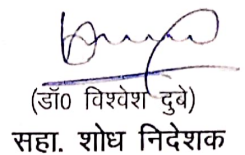 (डॉ0 विश्वेश दुबे)
सहा. शोध निदेशक